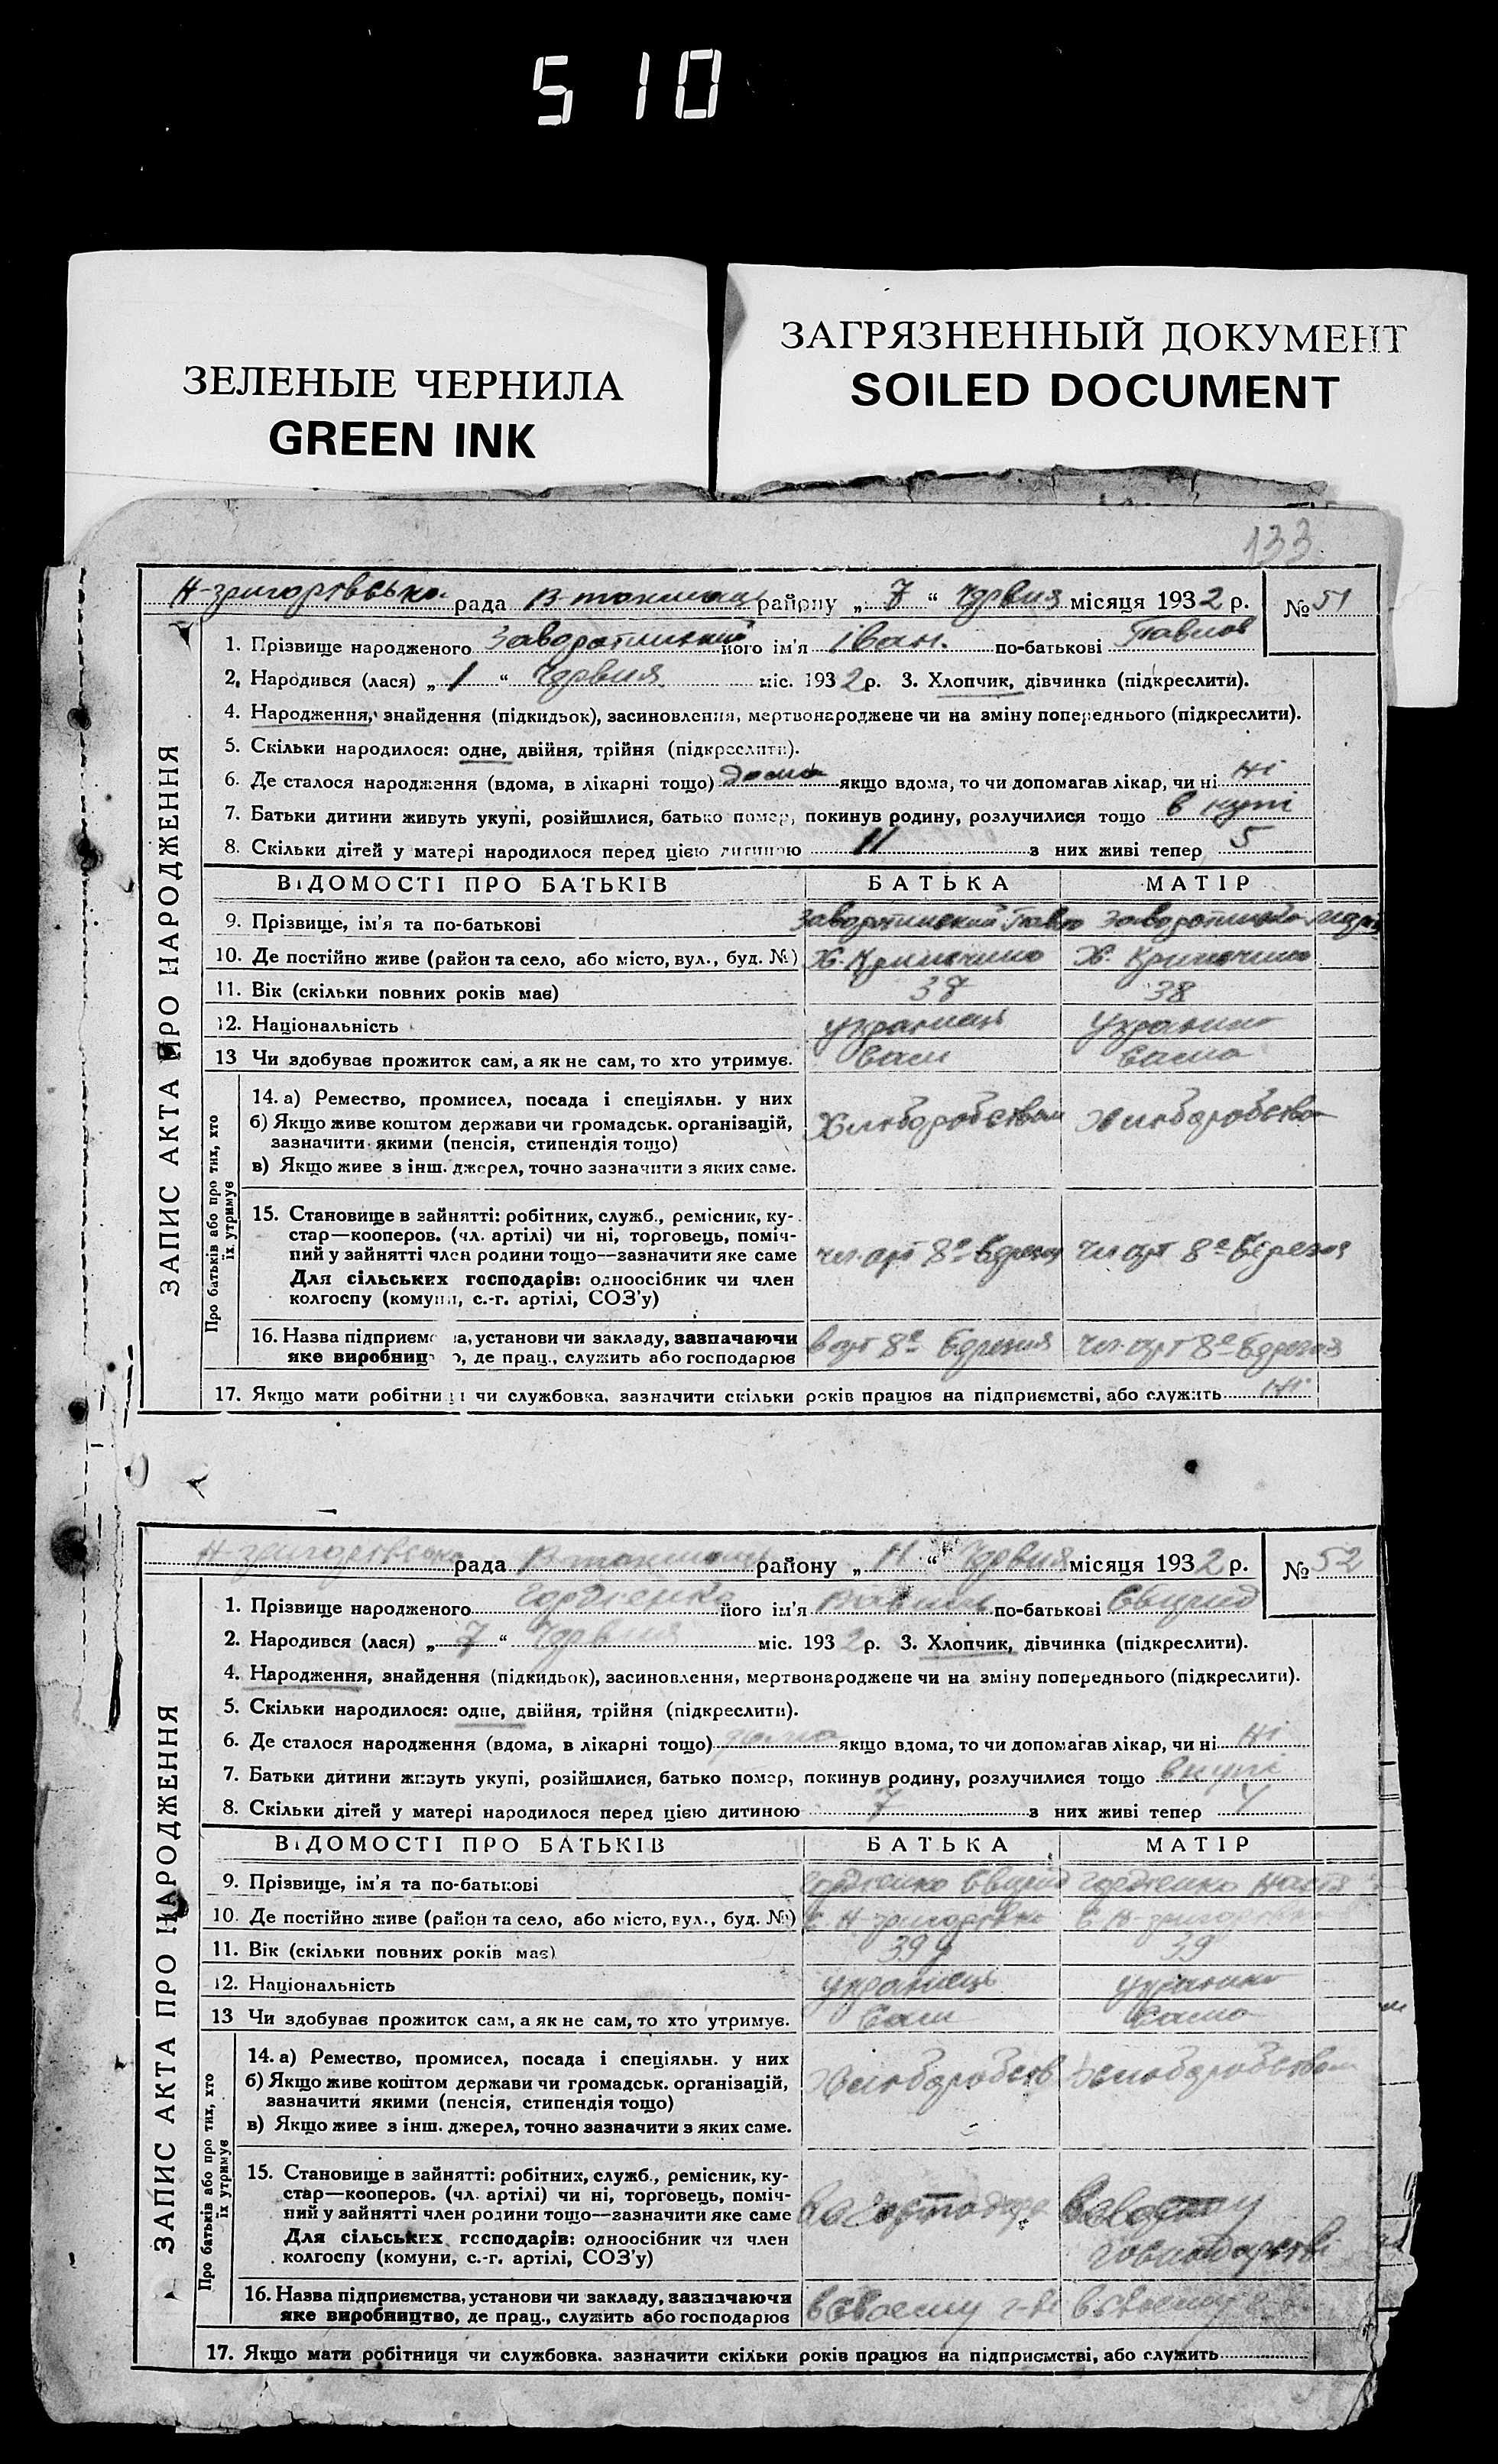 510
ЗЕЛЕНЫЕ ЧЕРНИЛА
GREEN INK
ЗАГРЯЗНЕННЫЙ ДОКУМЕНТ
SOILED DOCUMENT
133
Н-григорівська рада В-токмац району „ 7 “ Червня місяця 1932 р. № 51
1. Прізвище народженого Заворотинський його ім'я Іван. по-батькові Павлов
2. Народився (лася) „ 1 “ Червня міс. 1932 р. 3. Хлопчик, дівчинка (підкреслити).
4. Народження, знайдення (підкидьок), засиновлення, мертвонароджене чи на зміну попереднього (підкреслити).
5. Скільки народилося: одне, двійня, трійня (підкреслити).
6. Де сталося народження (вдома, в лікарні тощо) дома якщо вдома, то чи допомагав лікар, чи ні ні
7. Батьки дитини живуть укупі, розійшлися, батько помер, покинув родину, розлучилися тощо в купі
8. Скільки дітей у матері народилося перед цією дитиною 11 з них живі тепер 5
ВІДОМОСТІ ПРО БАТЬКІВ БАТЬКА МАТІР
9. Прізвище, ім'я та по-батькові Заворотинский Павло
10. Де постійно живе (район та село, або місто, вул., буд. №) Х. Кринично Х. Кринично
11. Вік (скільки повних років має) 37 38
12. Національність українець українка
13 Чи здобував прожиток сам, а як не сам, то хто утримує. сам сама
14. а) Ремество, промисел, посада і спеціяльн. у них
б) Якщо живе коштом держави чи громадськ. організацій,
зазначити якими (пенсія, стипендія тощо)
в) Якщо живе з інш. джерел, точно зазначити з яких саме.
Хліборобством Хліборобство
15. Становище в зайнятті: робітник, служб., ремісник, ку-
стар—кооперов. (чл. артілі) чи ні, торговець, поміч-
ний у зайнятті член родини тощо—зазначити яке саме
Для сільських господарів: одноосібник чи член
колгоспу (комуни, с.-г. артілі, СОЗ'у)
чл. арт 8го Березня чл арт 8го Березня
16. Назва підприємства, установи чи закладу, зазначаючи
яке виробництво, де прац., служить або господарює
в арт 8го Березня чл. арт 8го Березня
17. Якщо мати робітниця чи службовка, зазначити скільки років працює на підприємстві, або служить ні
ЗАПИС АКТА ПРО НАРОДЖЕННЯ
Про батьків або про тих, хто
їх утримує
Н-григорівська рада В-токмац району „ 11 “ Червня місяця 1932 р. № 52
1. Прізвище народженого Гордієнко його ім'я по-батькові
2. Народився (лася) „ 7 “ Червня міс. 1932 р. 3. Хлопчик, дівчинка (підкреслити).
4. Народження, знайдення (підкидьок), засиновлення, мертвонароджене чи на зміну попереднього (підкреслити).
5. Скільки народилося: одне, двійня, трійня (підкреслити).
6. Де сталося народження (вдома, в лікарні тощо) дома якщо вдома, то чи допомагав лікар, чи ні ні
7. Батьки дитини живуть укупі, розійшлися, батько помер, покинув родину, розлучилися тощо вкупі
8. Скільки дітей у матері народилося перед цією дитиною 7 з них живі тепер 4
ВІДОМОСТІ ПРО БАТЬКІВ БАТЬКА МАТІР
9. Прізвище, ім'я та по-батькові Гордієнко Гордієнко Настя
10. Де постійно живе (район та село, або місто, вул., буд. №) с. Н-григорівка с. Н-григорівка
11. Вік (скільки повних років має) 39 39
12. Національність українець українка
13 Чи здобував прожиток сам, а як не сам, то хто утримує. сам сама
14. а) Ремество, промисел, посада і спеціяльн. у них
б) Якщо живе коштом держави чи громадськ. організацій,
зазначити якими (пенсія, стипендія тощо)
в) Якщо живе з інш. джерел, точно зазначити з яких саме.
Хліборобств Хліборобством
15. Становище в зайнятті: робітник, служб., ремісник, ку-
стар—кооперов. (чл. артілі) чи ні, торговець, поміч-
ний у зайнятті член родини тощо—зазначити яке саме
Для сільських господарів: одноосібник чи член
колгоспу (комуни, с.-г. артілі, СОЗ'у)
господарстві
16. Назва підприємства, установи чи закладу, зазначаючи
яке виробництво, де прац., служить або господарює
в своему г-ві в своему
17. Якщо мати робітниця чи службовка, зазначити скільки років працює на підприємстві, або служить
ЗАПИС АКТА ПРО НАРОДЖЕННЯ
Про батьків або про тих, хто
їх утримує